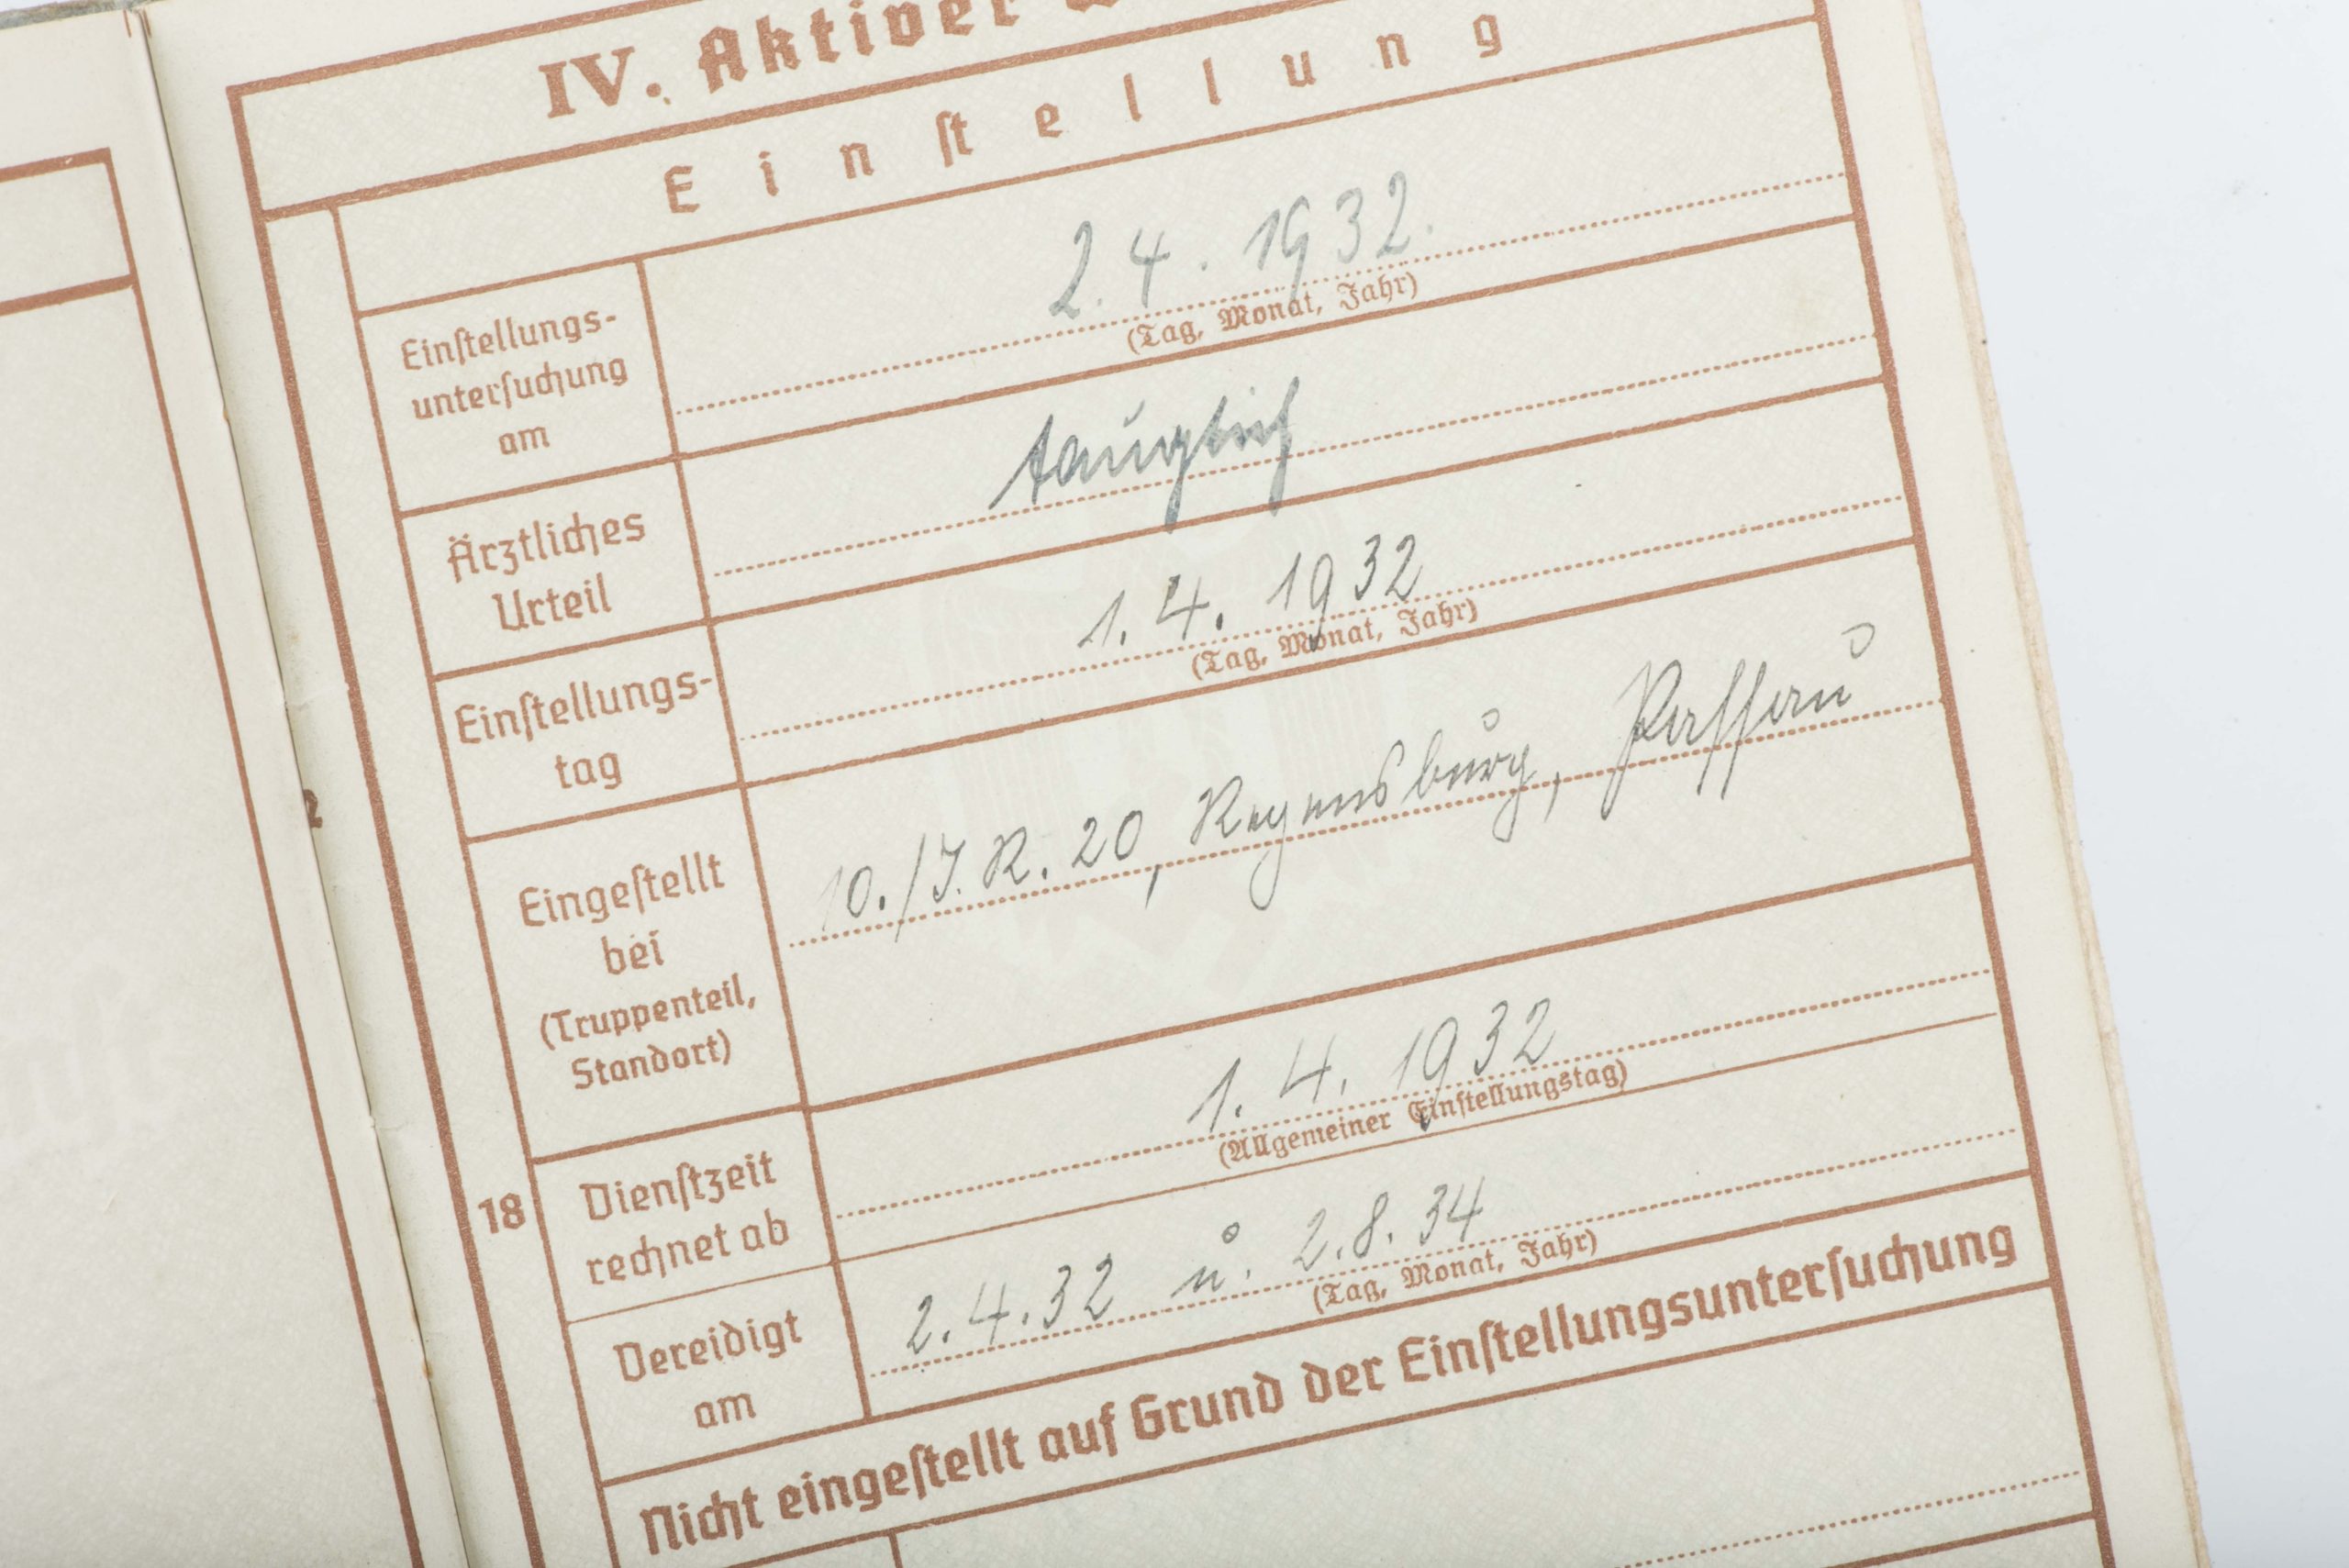 IV. Aktiver
Einstellung
Einstellungs-
untersuchung
am
2.4.1932.
(Tag, Monat, Jahr)
Ärztliches
Urteil
tauglich
Einstellungs-
tag
1.4.1932
(Tag, Monat, Jahr)
Eingestellt
bei
(Truppenteil,
Standort)
10./J.R. 20, Regensburg, Passau
18
Dienstzeit
rechnet ab
1.4.1932
(Allgemeiner Einstellungstag)
Vereidigt
am
2.4.32 u. 2.8.34
(Tag, Monat, Jahr)
Nicht eingestellt auf Grund der Einstellungsuntersuchung